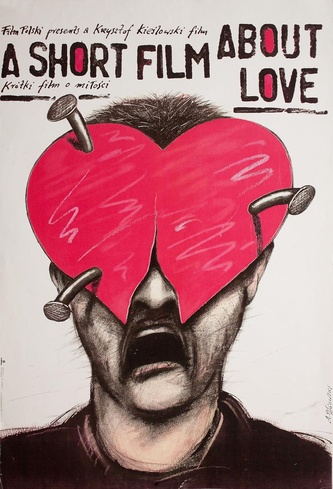 Film Polski presents a Krzysztof Kieślowski film
A SHORT FILM ABOUT LOVE
Krótki film o miłości